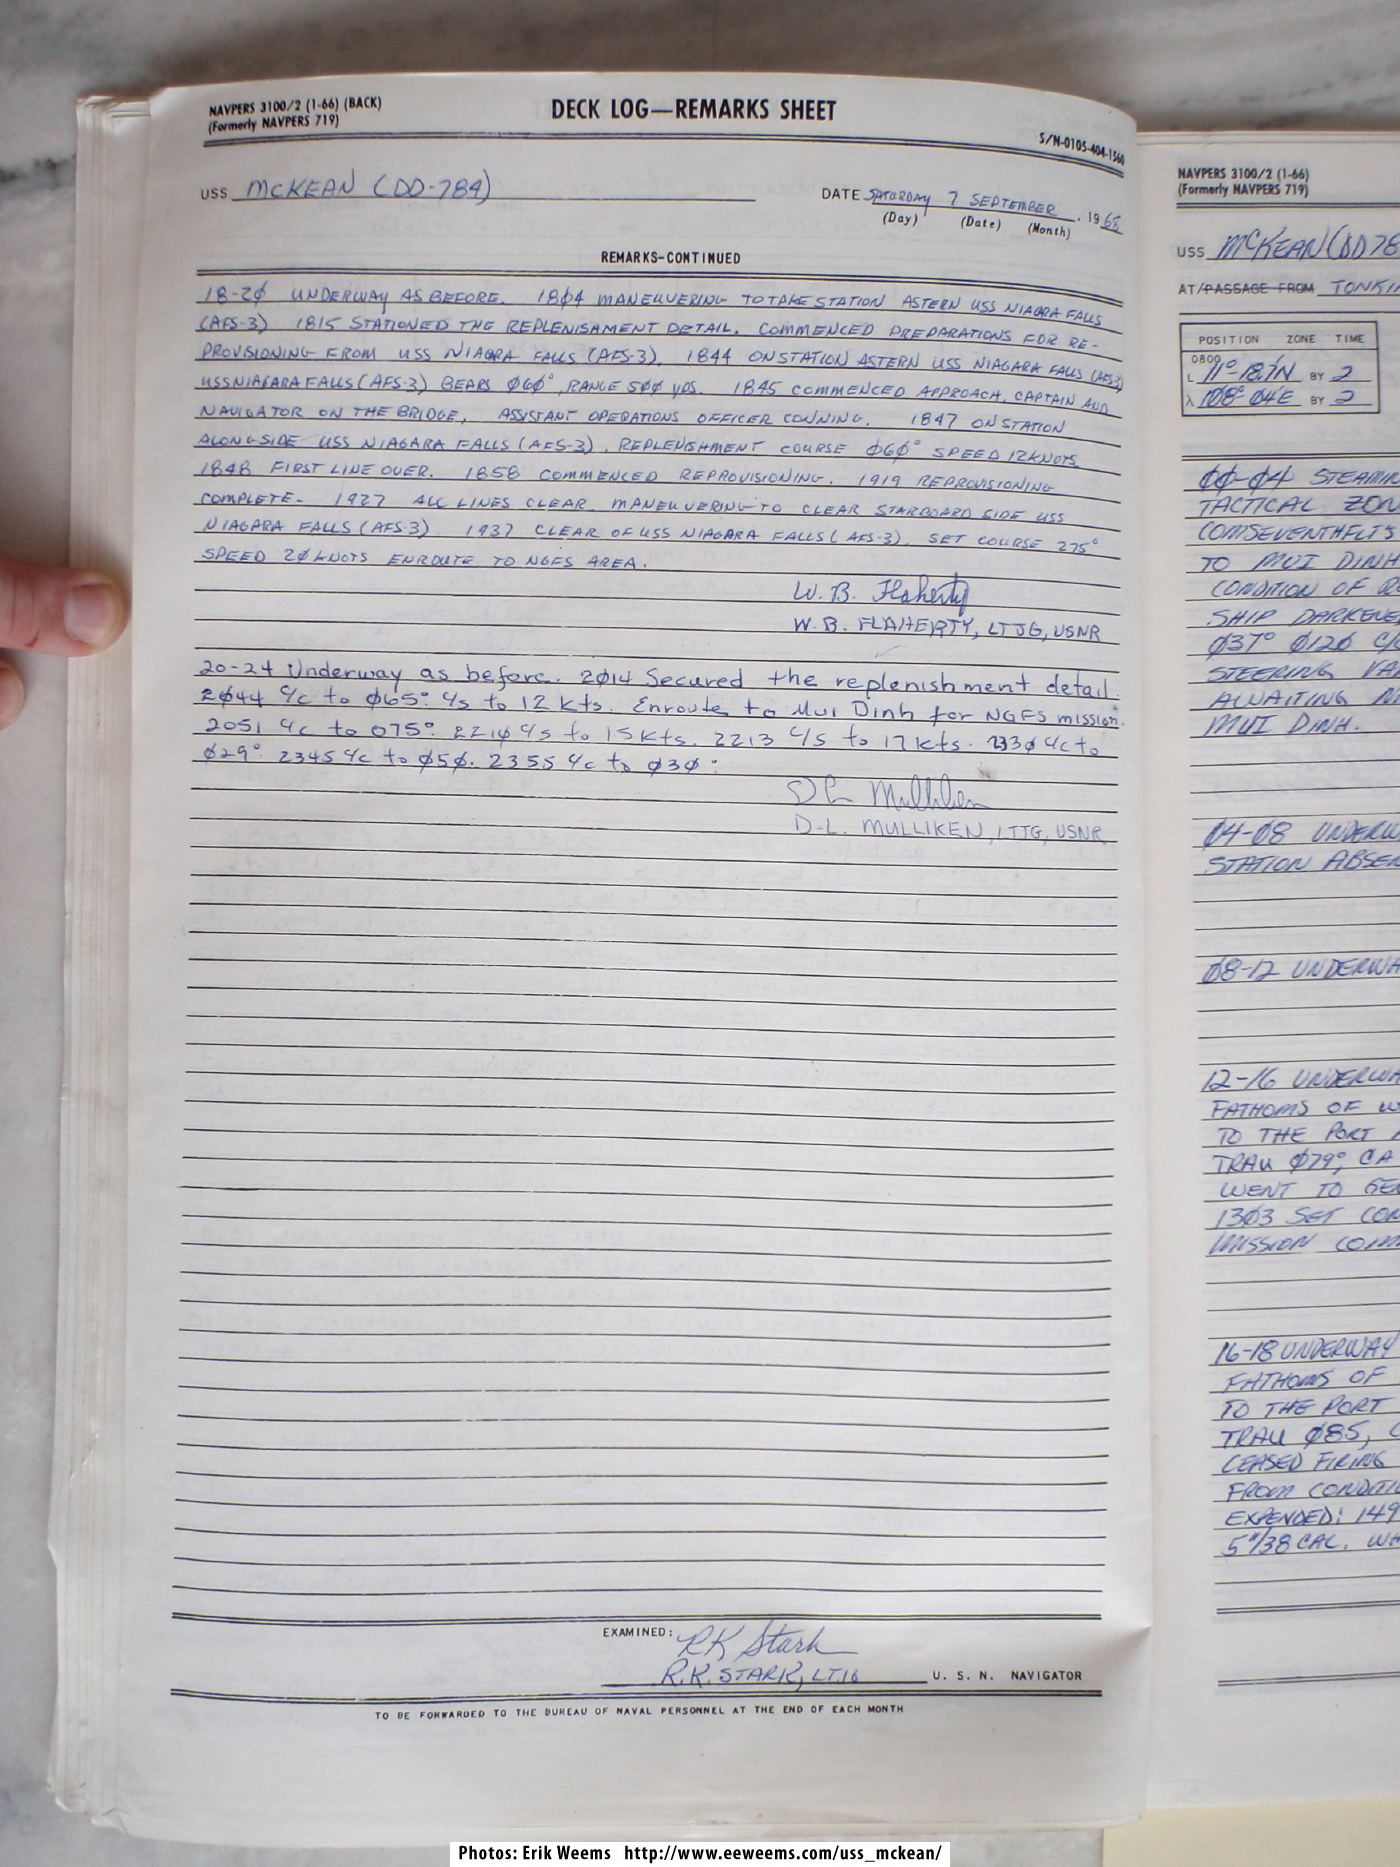 NAVPERS 3100/2 (1-66) (BACK)
(Formerly NAVPERS 719)
DECK LOG—REMARKS SHEET
S/N-0105-404-1560
USS MCKEAN (DD-784)
DATE SATURDAY 7 SEPTEMBER, 1968
(Day) (Date) (Month)
REMARKS-CONTINUED
18-2Ø UNDERWAY AS BEFORE. 18Ø4 MANEUVERING TO TAKE STATION ASTERN USS NIAGARA FALLS
(AFS-3) 1815 STATIONED THE REPLENISHMENT DETAIL. COMMENCED PREPARATIONS FOR RE-
PROVISIONING FROM USS NIAGRA FALLS (AFS-3). 1844 ON STATION ASTERN USS NIAGARA FALLS (AFS3)
USS NIAGARA FALLS (AFS-3) BEARS Ø6Ø°, RANGE 5ØØ YDS. 1845 COMMENCED APPROACH, CAPTAIN AND
NAVIGATOR ON THE BRIDGE, ASSISTANT OPERATIONS OFFICER CONNING. 1847 ON STATION
ALONGSIDE USS NIAGARA FALLS (AFS-3), REPLENSHMENT COURSE Ø6Ø° SPEED 12 KNOTS.
1848 FIRST LINE OVER. 1858 COMMENCED REPROVISIONING. 1919 REPROVISIONING
COMPLETE. 1927 ALL LINES CLEAR. MANEUVERING TO CLEAR STARBOARD SIDE USS
NIAGARA FALLS (AFS-3). 1937 CLEAR OF USS NIAGARA FALLS (AFS-3). SET COURSE 275°
SPEED 2Ø KNOTS ENROUTE TO NGFS AREA.
W. B. Flaherty
W. B. FLAHERTY, LTJG, USNR
20-24 Underway as before. 2Ø14 Secured the replenishment detail.
2Ø44 c/c to Ø65° c/s to 12 kts. Enroute to Mui Dinh for NGFS mission.
2051 c/c to 075° 221Ø c/s to 15 kts. 2213 c/s to 17 kts. 233Ø c/c to
Ø29°. 2345 c/c to Ø5Ø. 2355 c/c to Ø3Ø°.
D L Mulliken
D. L. MULLIKEN, LTJG, USNR
EXAMINED: RK Stark
R.K. STARK, LTJG U. S. N. NAVIGATOR
TO BE FORWARDED TO THE BUREAU OF NAVAL PERSONNEL AT THE END OF EACH MONTH
NAVPERS 3100/2 (1-66)
(Formerly NAVPERS 719)
USS MCKEAN (DD 78
AT/PASSAGE FROM TONKIN
POSITION ZONE TIME
0800
L 11°-18.7N BY 2
λ 108° 04'E BY 2
ØØ-Ø4 STEAMIN
TACTICAL ZON
COMSEVENTHFLT'S
TO MUI DINH
CONDITION OF
SHIP DARKENE
Ø37° Ø12Ø C/C
STEERING VA
AWAITING
MUI DINH.
Ø4-Ø8 UNDERW
STATION ABSEN
Ø8-12 UNDERWA
12-16 UNDERWA
FATHOMS OF W
TO THE PORT
TRAU Ø79°, CA
WENT TO GEN
13Ø3 SET CON
MISSION COM
16-18 UNDERWAY
FATHOMS OF
TO THE PORT
TRAU Ø85, C
CEASED FIRING
FROM CONDITI
EXPENDED: 149
5"/38 CAL. WH
Photos: Erik Weems http://www.eeweems.com/uss_mckean/